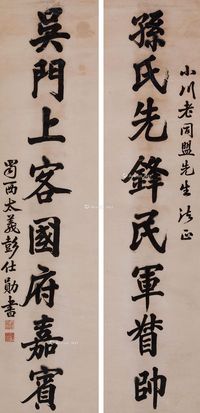 小川老同盟先生法正
孫氏先鋒民軍賛帥
吳門上客國府嘉賓
蜀西太義彭仕勛書